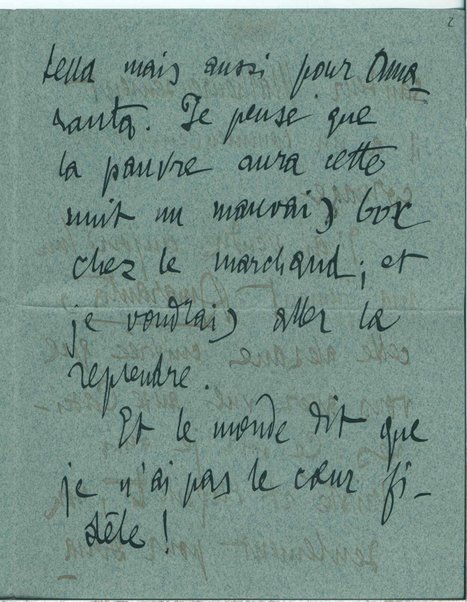 2
tella mais aussi pour Ama-
ranta. Je pense que
la pauvre aura cette
nuit un mauvais box
chez le marchand ; et
je voudrais aller la
reprendre.
Et le monde dit que
je n'ai pas le cœur fi-
dèle !